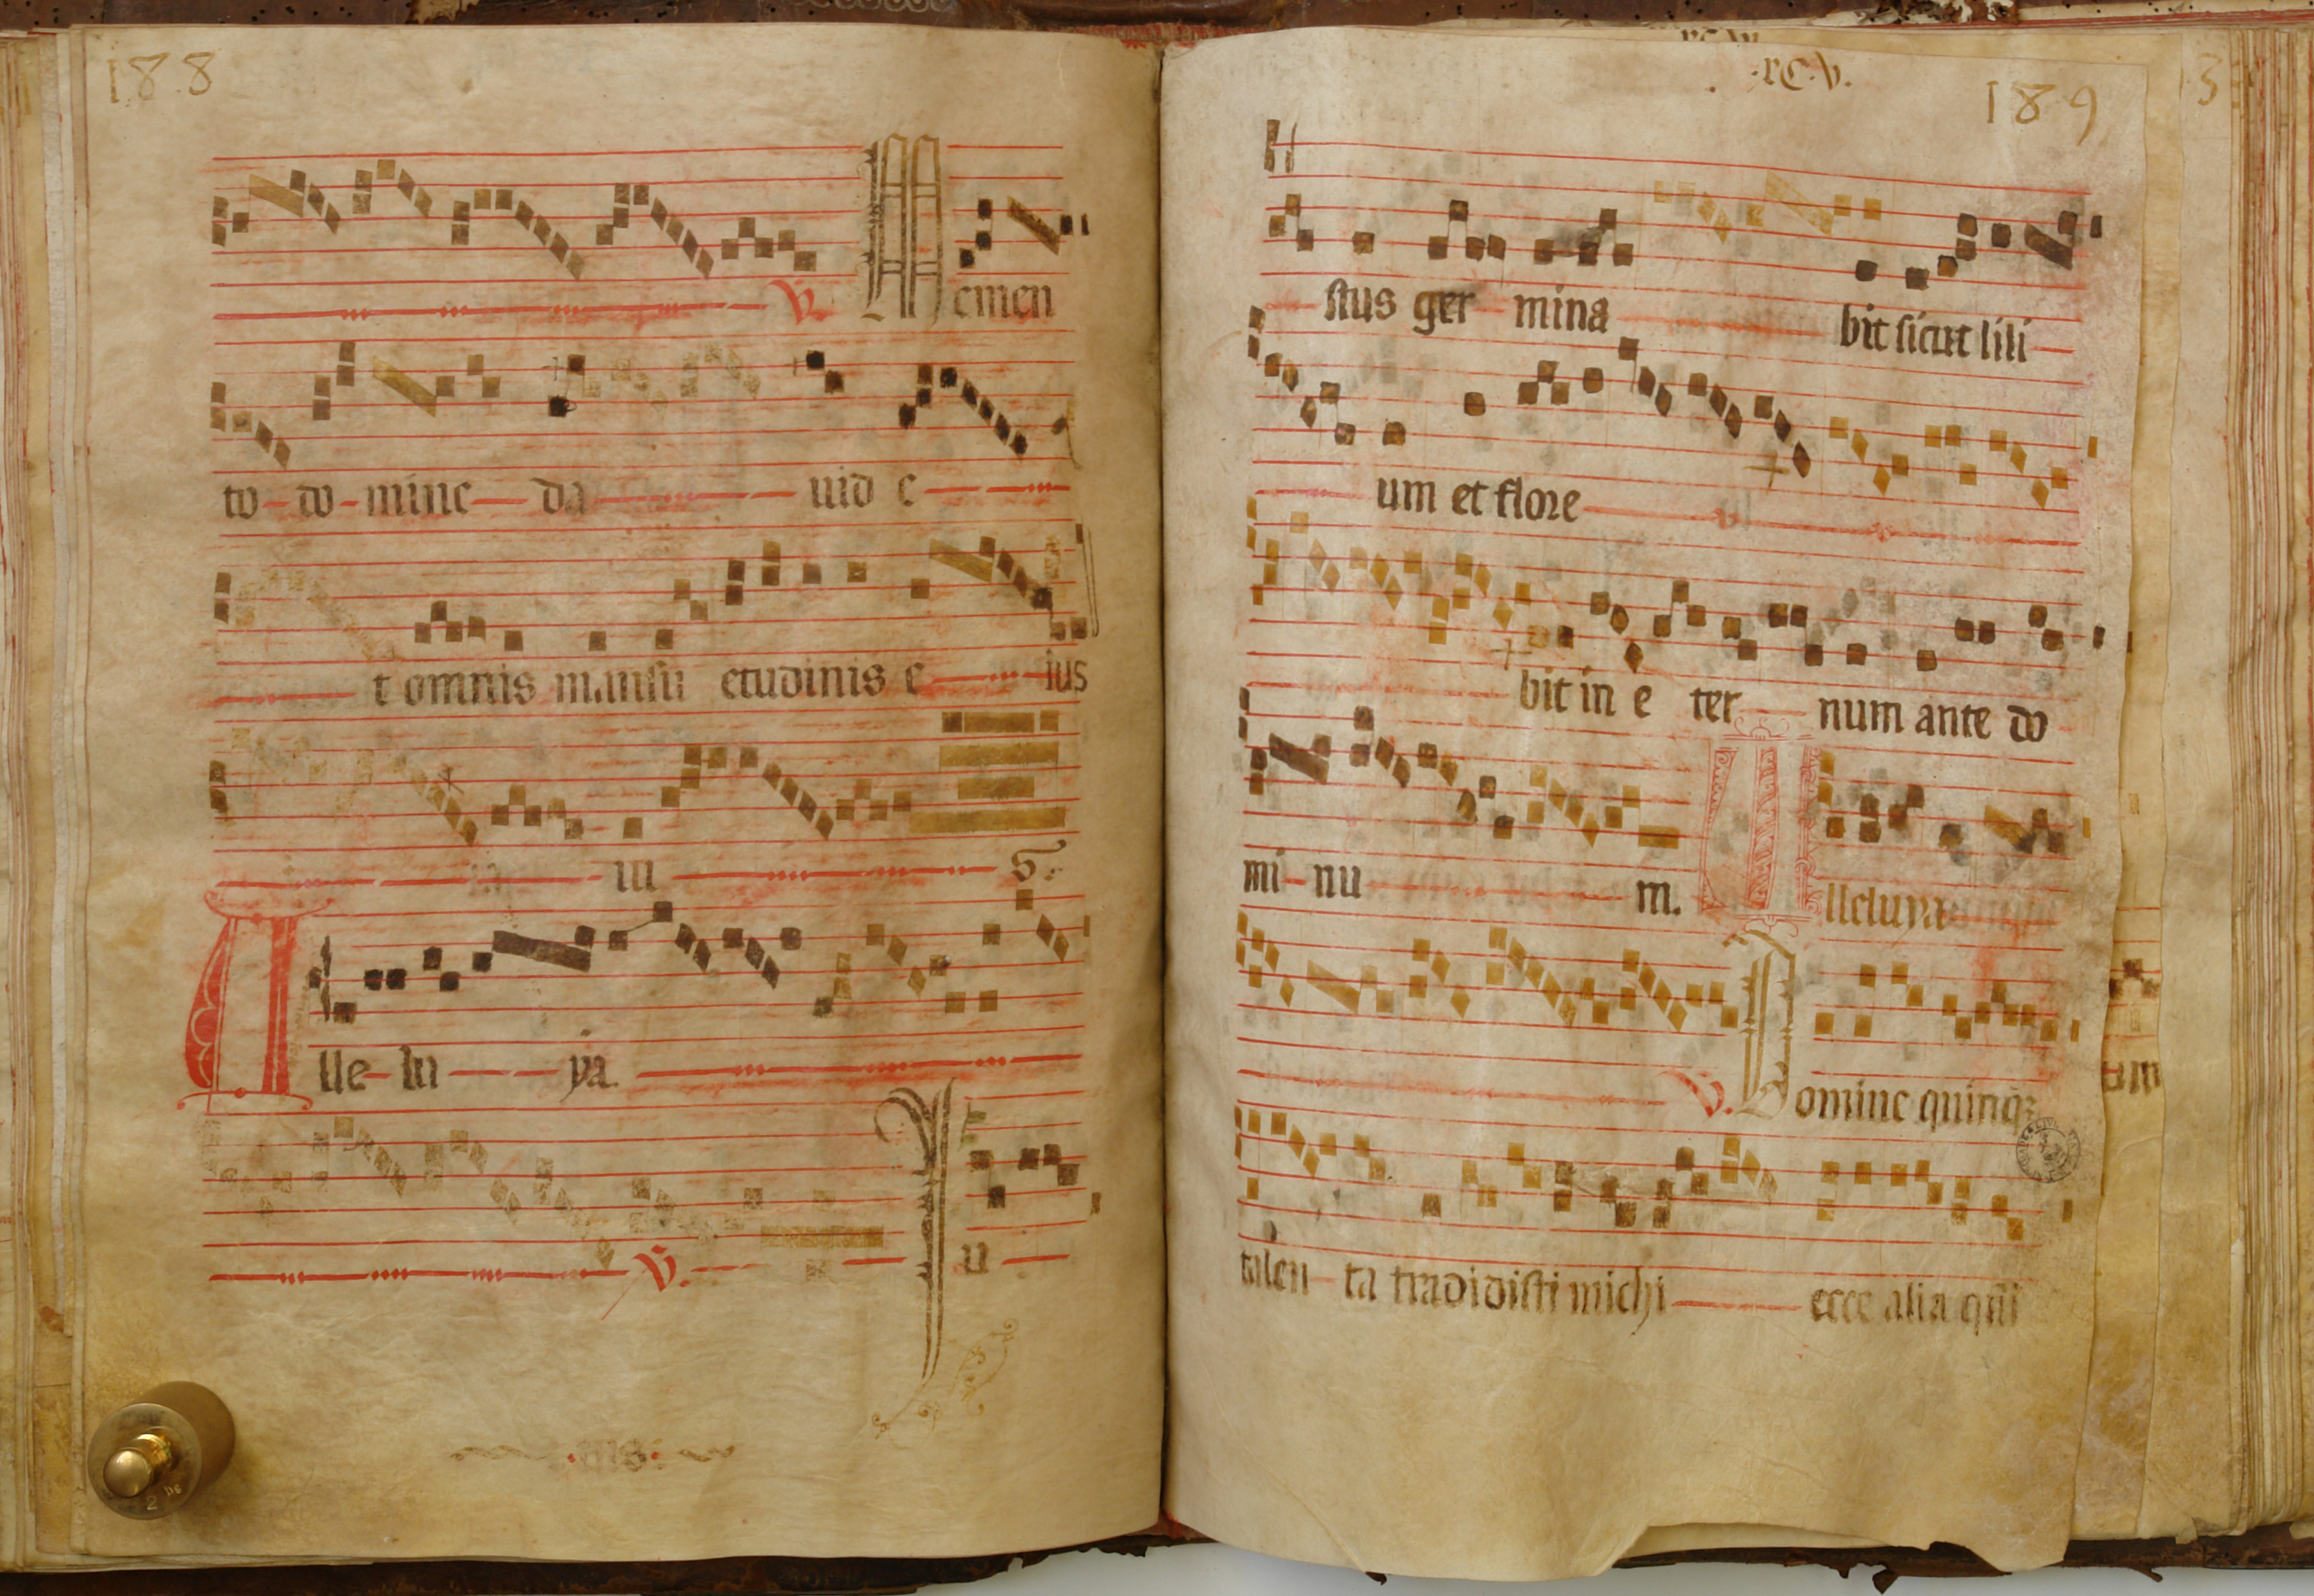 188
V. Memen
to do mine da uid e
t omnis mansu etudinis e ius
iu s.
Alle lu ya.
V. Iu
.rC.V.
189
stus ger mina bit sicut lili
um et flore
bit in e ter num ante do
mi nu m. Alleluya
V. Domine quinqꝫ
talen ta tradidisti michi ecce alia
um
3